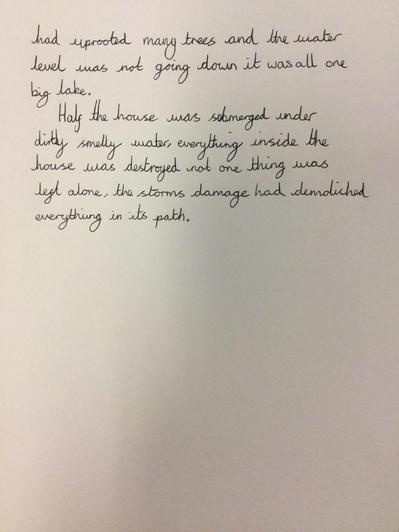 had uprooted many trees and the water
level was not going down it was all one
big lake.
Half the house was submerged under
dirty smelly water, everything inside the
house was destroyed not one thing was
left alone, the storms damage had demolished
everything in its path.